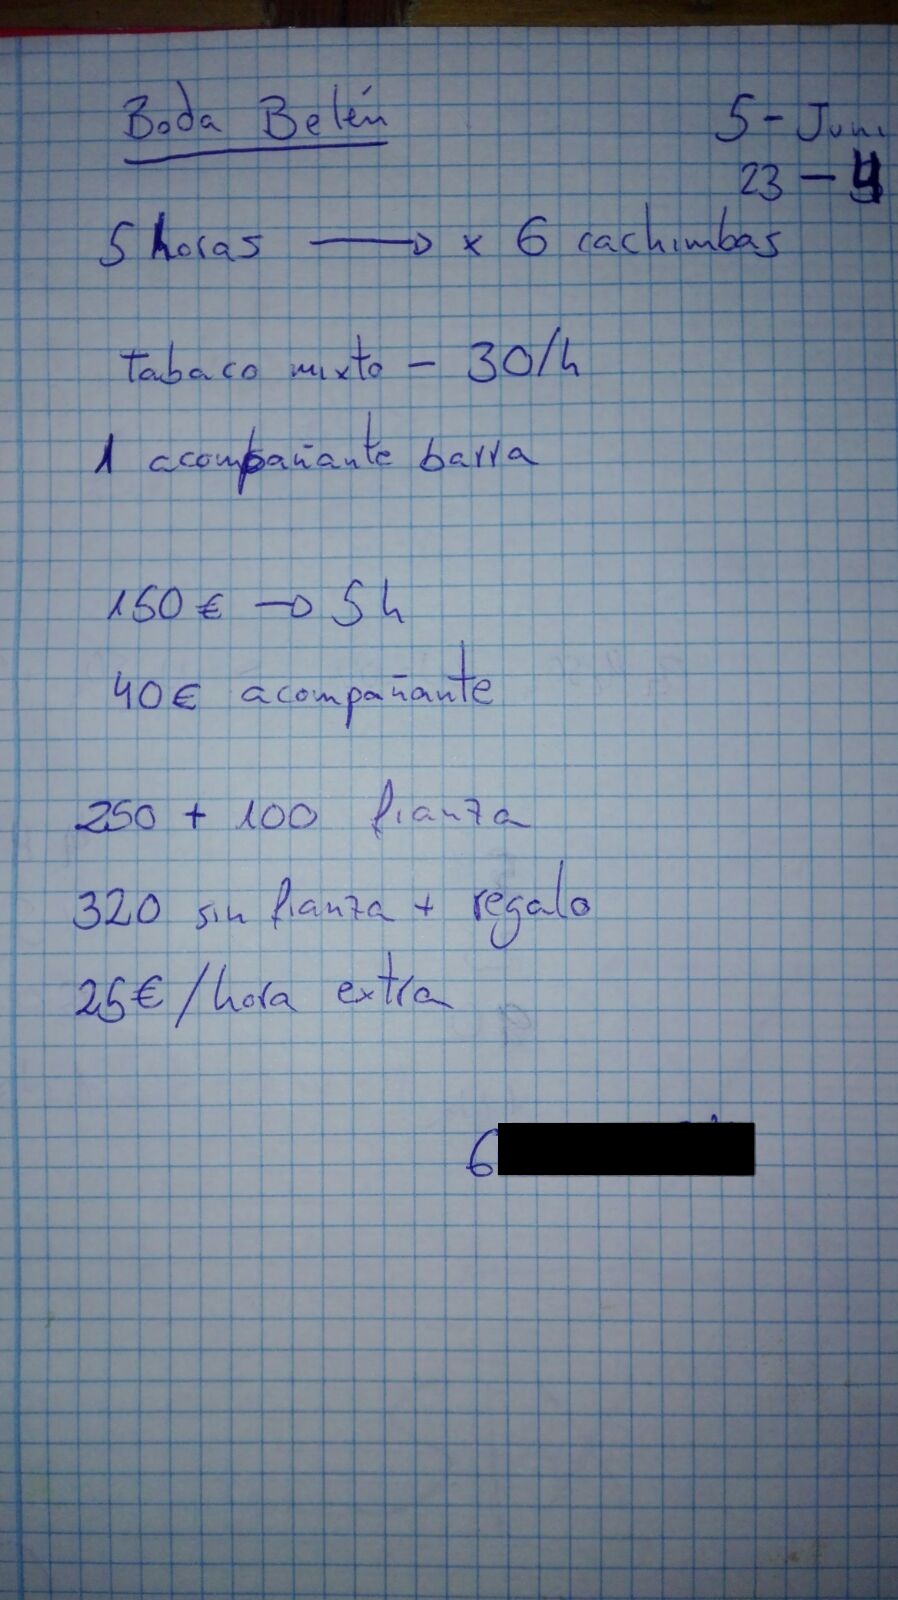 Boda Belén
5 - Juni
23 - 4
5 horas → x 6 cachimbas
tabaco mixto - 30/h
1 acompañante barra
150€ → 5h
40€ acompañante
250 + 100 fianza
320 sin fianza + regalo
25€/hora extra
6